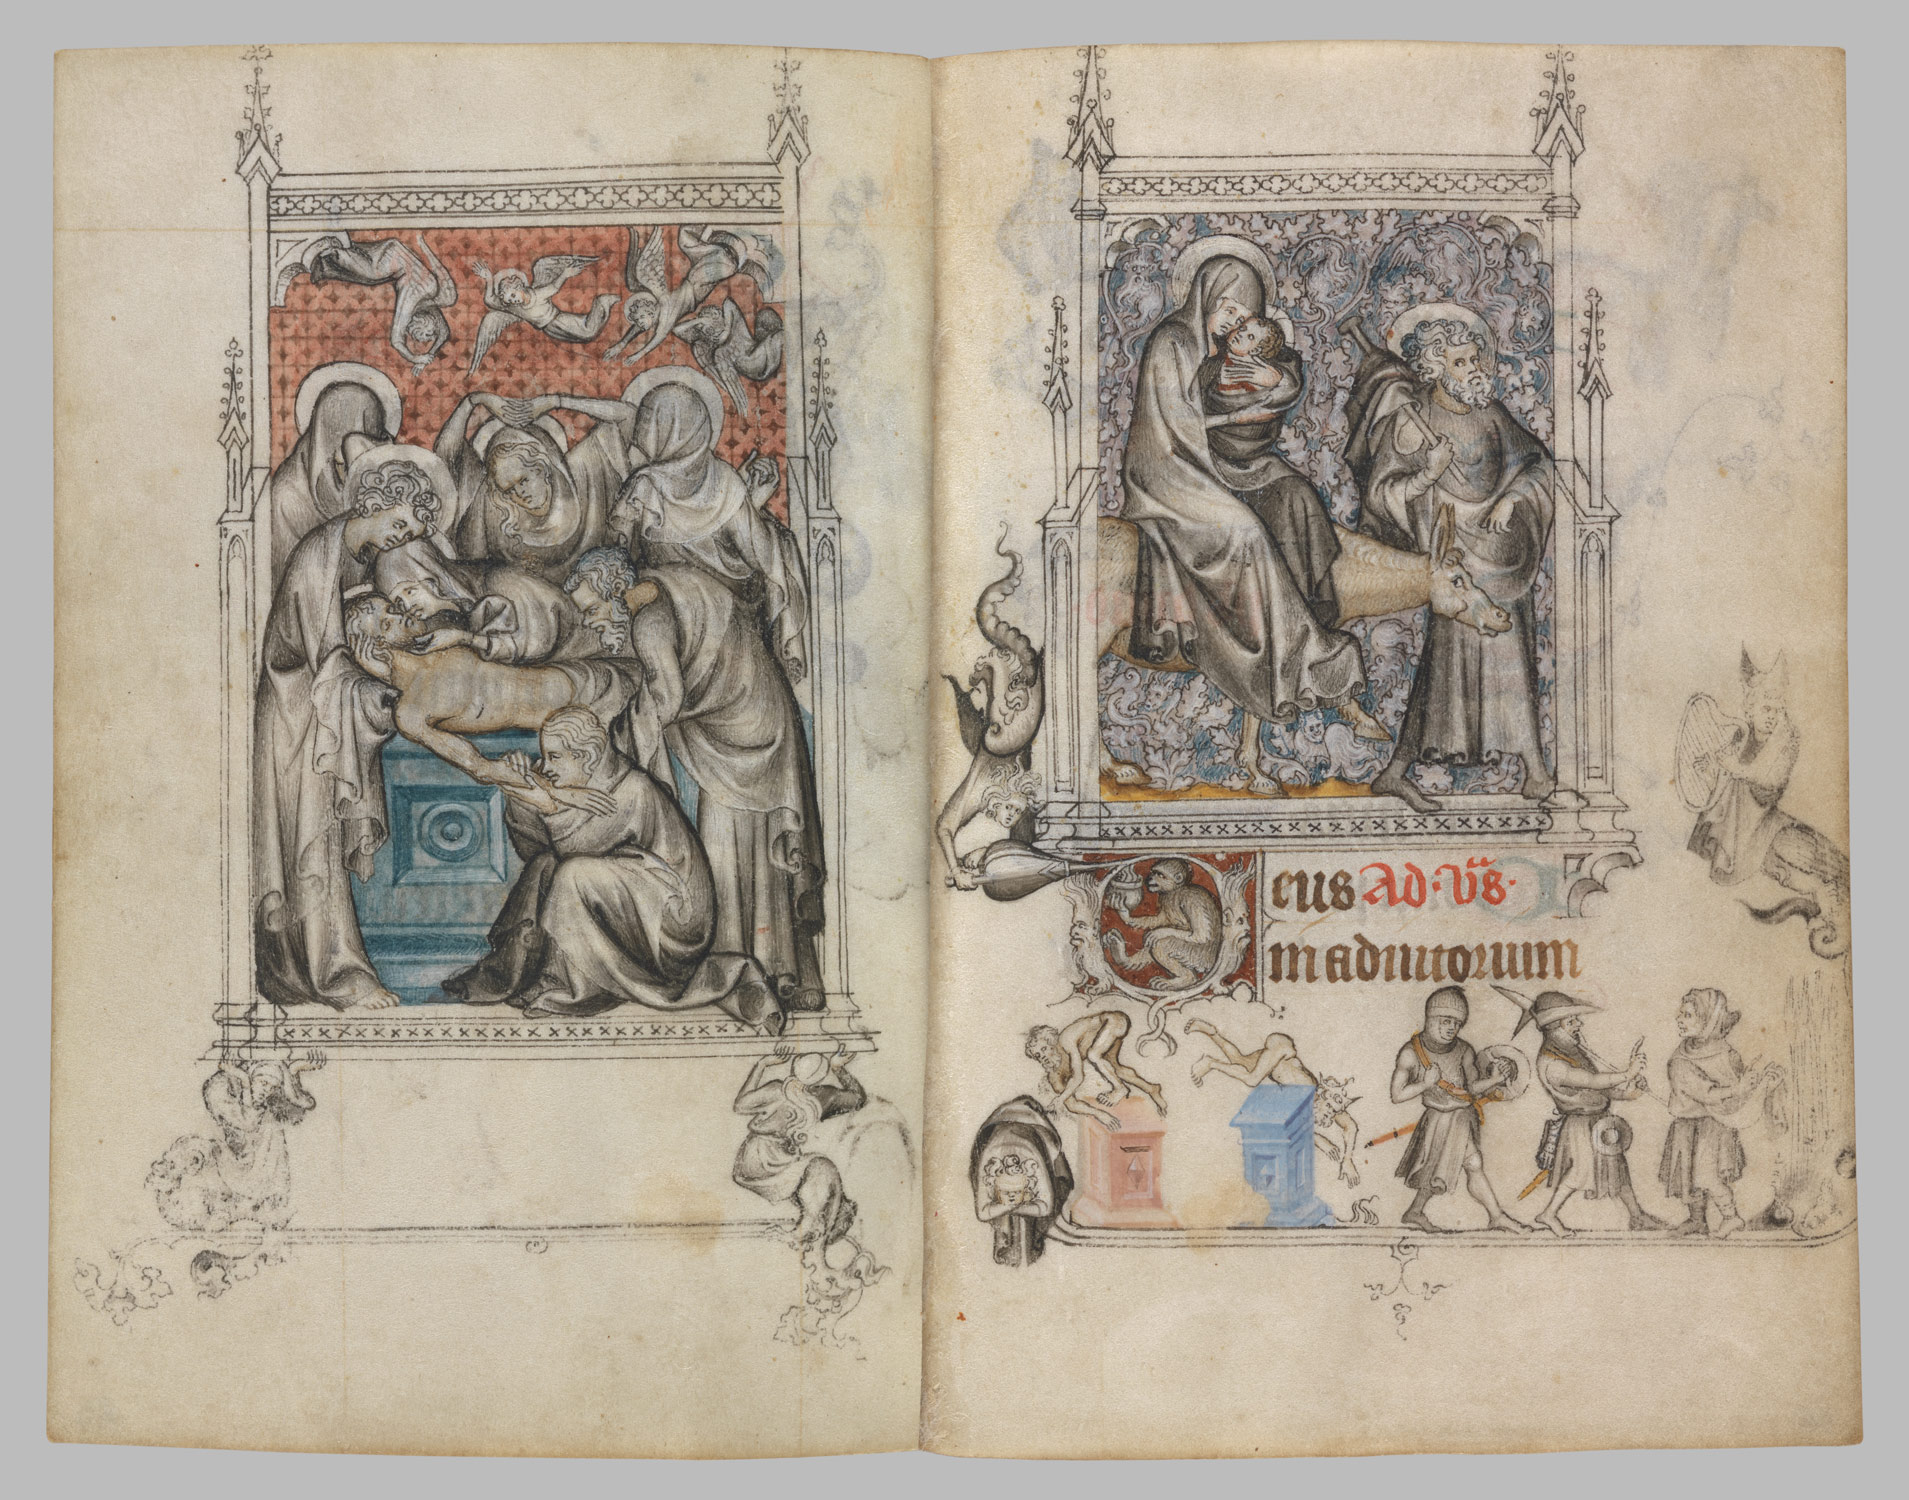 eus Ad· vs̄·
m adiutorium